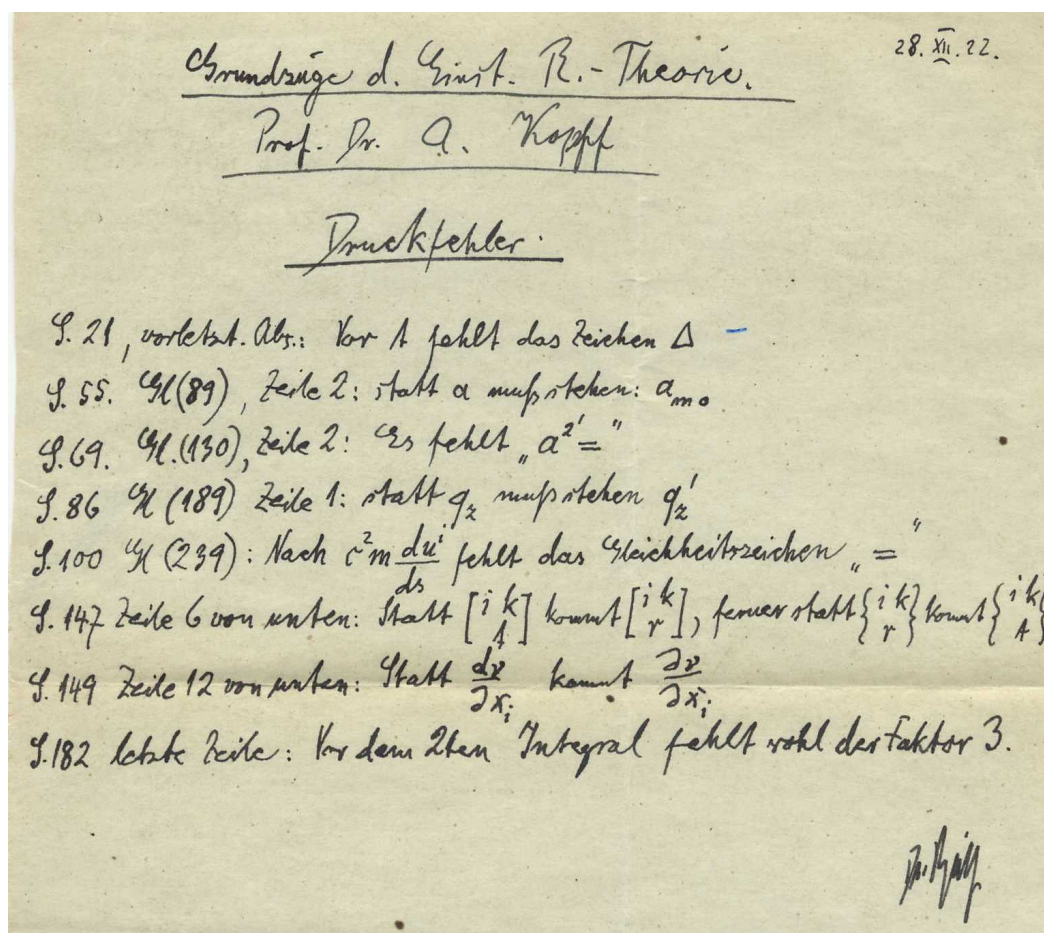 28. XII. 22.
Grundzüge d. Einst. R.-Theorie.
Prof. Dr. A. Kopff
Druckfehler.
S. 21, vorletzt. Abs.: Vor t fehlt das Zeichen Δ
S. 55. Gl (89), Zeile 2: statt a muß stehen: a_{m_0}
S. 69. Gl. (130), Zeile 2: Es fehlt „a^{2'} = "
S. 86 Gl (189) Zeile 1: statt q_z muß stehen q_z'
S. 100 Gl (239): Nach c²m du^i/ds fehlt das Gleichheitszeichen „ = "
S. 147 Zeile 6 von unten: Statt [i k t] kommt [i k r], ferner statt {i k r} kommt {i k t}
S. 149 Zeile 12 von unten: Statt dν/∂x_i kommt ∂ν/∂x_i
S. 182 letzte Zeile: Vor dem 2ten Integral fehlt wohl der Faktor 3.
Dr.